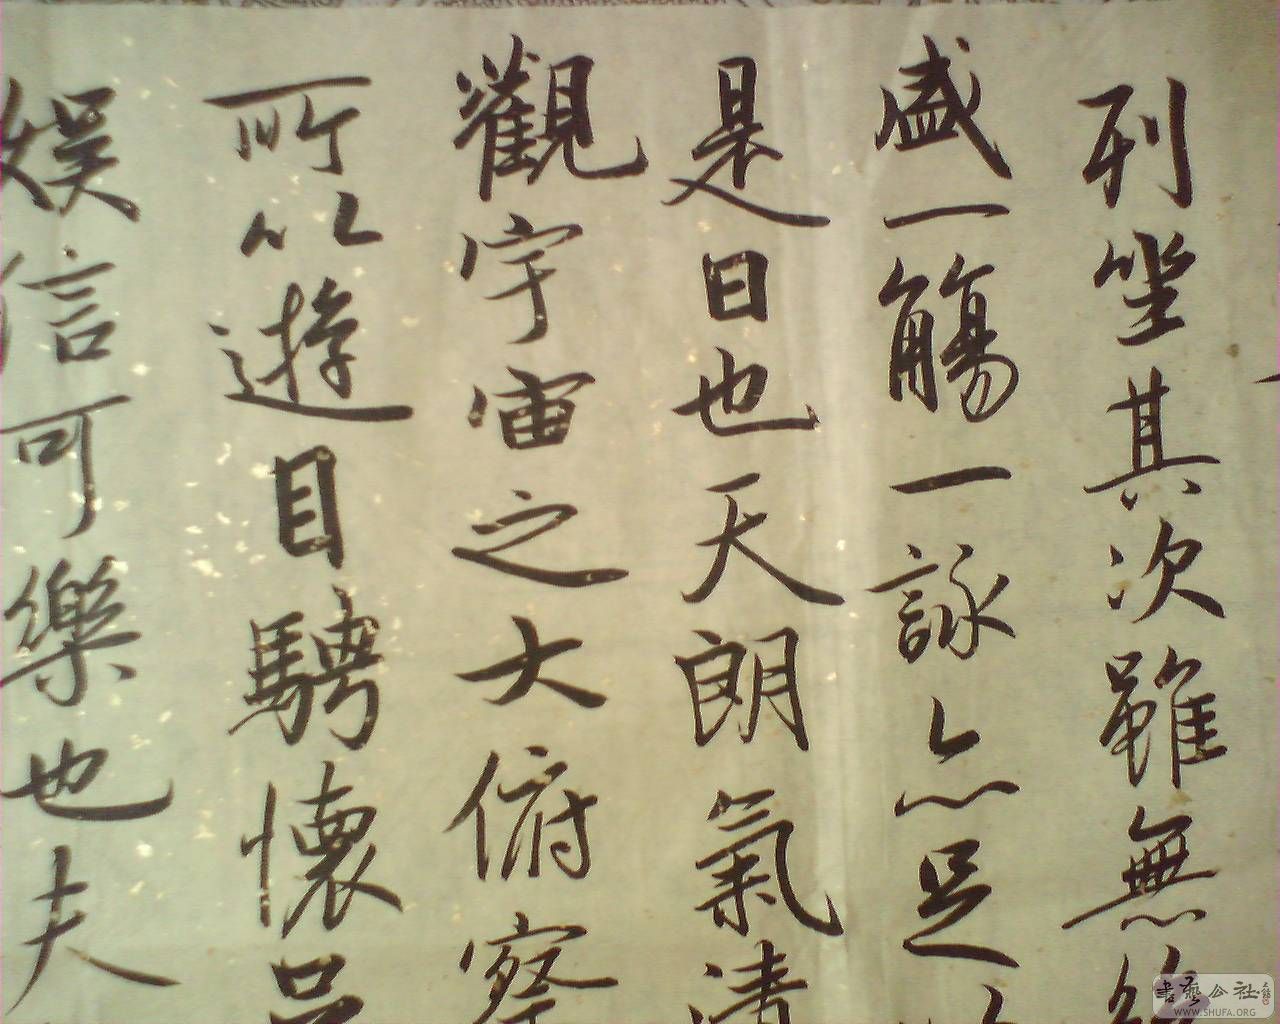 列坐其次雖無
盛一觴一詠亦足
是日也天朗氣清
觀宇宙之大俯察
所以遊目騁懷足
娱信可樂也夫
書藝公社
WWW.SHUFA.ORG